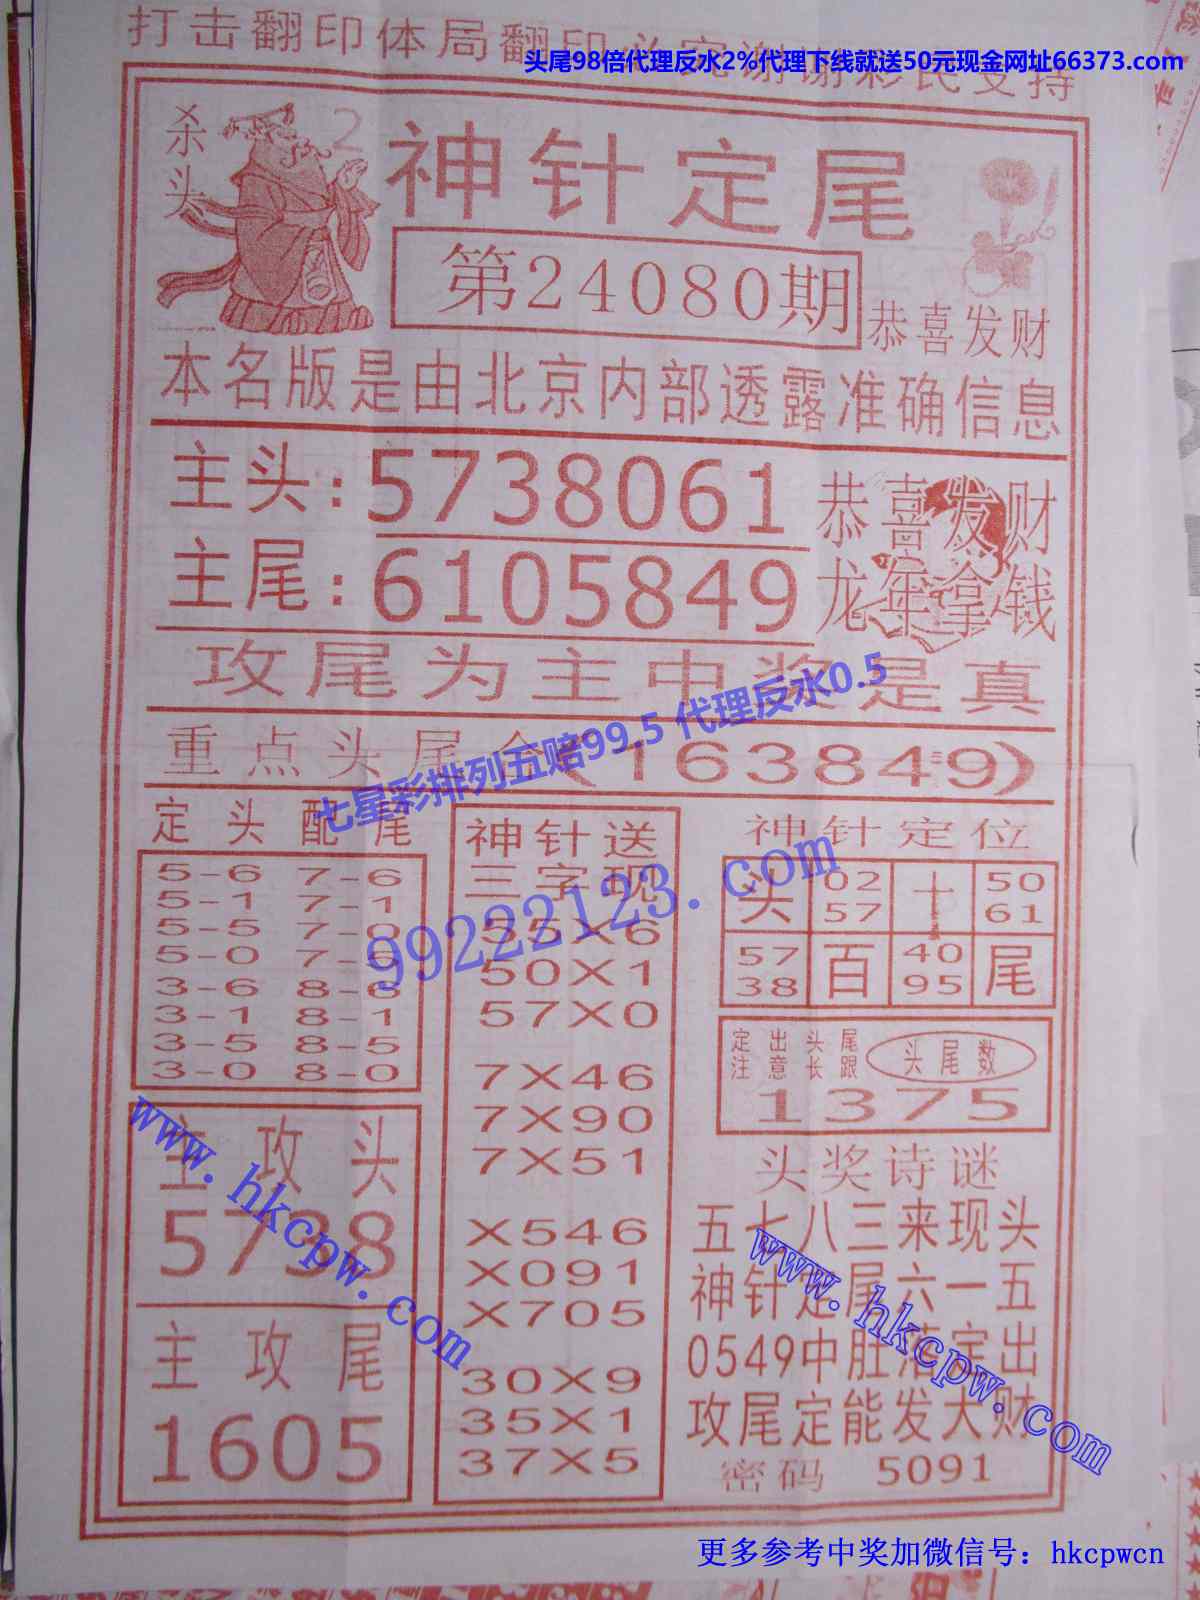 打击翻印体局翻印必究谢谢彩民支持
头尾98倍代理反水2%代理下线就送50元现金网址66373.com
杀头
2
神针定尾
第24080期
恭喜发财
本名版是由北京内部透露准确信息
主头:5738061
恭喜发财
主尾:6105849
龙年拿钱
攻尾为主中奖是真
七星彩排列五赔99.5 代理反水0.5
重点头尾合(163849)
定头配尾
5-6 7-6
5-1 7-1
5-5 7-0
5-0 7-5
3-6 8-6
3-1 8-1
3-5 8-5
3-0 8-0
神针送
三字现
35X6
50X1
57X0
7X46
7X90
7X51
X546
X091
X705
30X9
35X1
37X5
99222123.com
神针定位
头 02 十 50
57 61
57 百 40 尾
38 95
定出头尾
注意长跟
头尾数
1375
主攻头
5738
主攻尾
1605
www.hkcpw.com
头奖诗谜
五七八三来现头
神针定尾六一五
0549中肚落定出
攻尾定能发大财
密码 5091
www.hkcpw.com
更多参考中奖加微信号：hkcpwcn